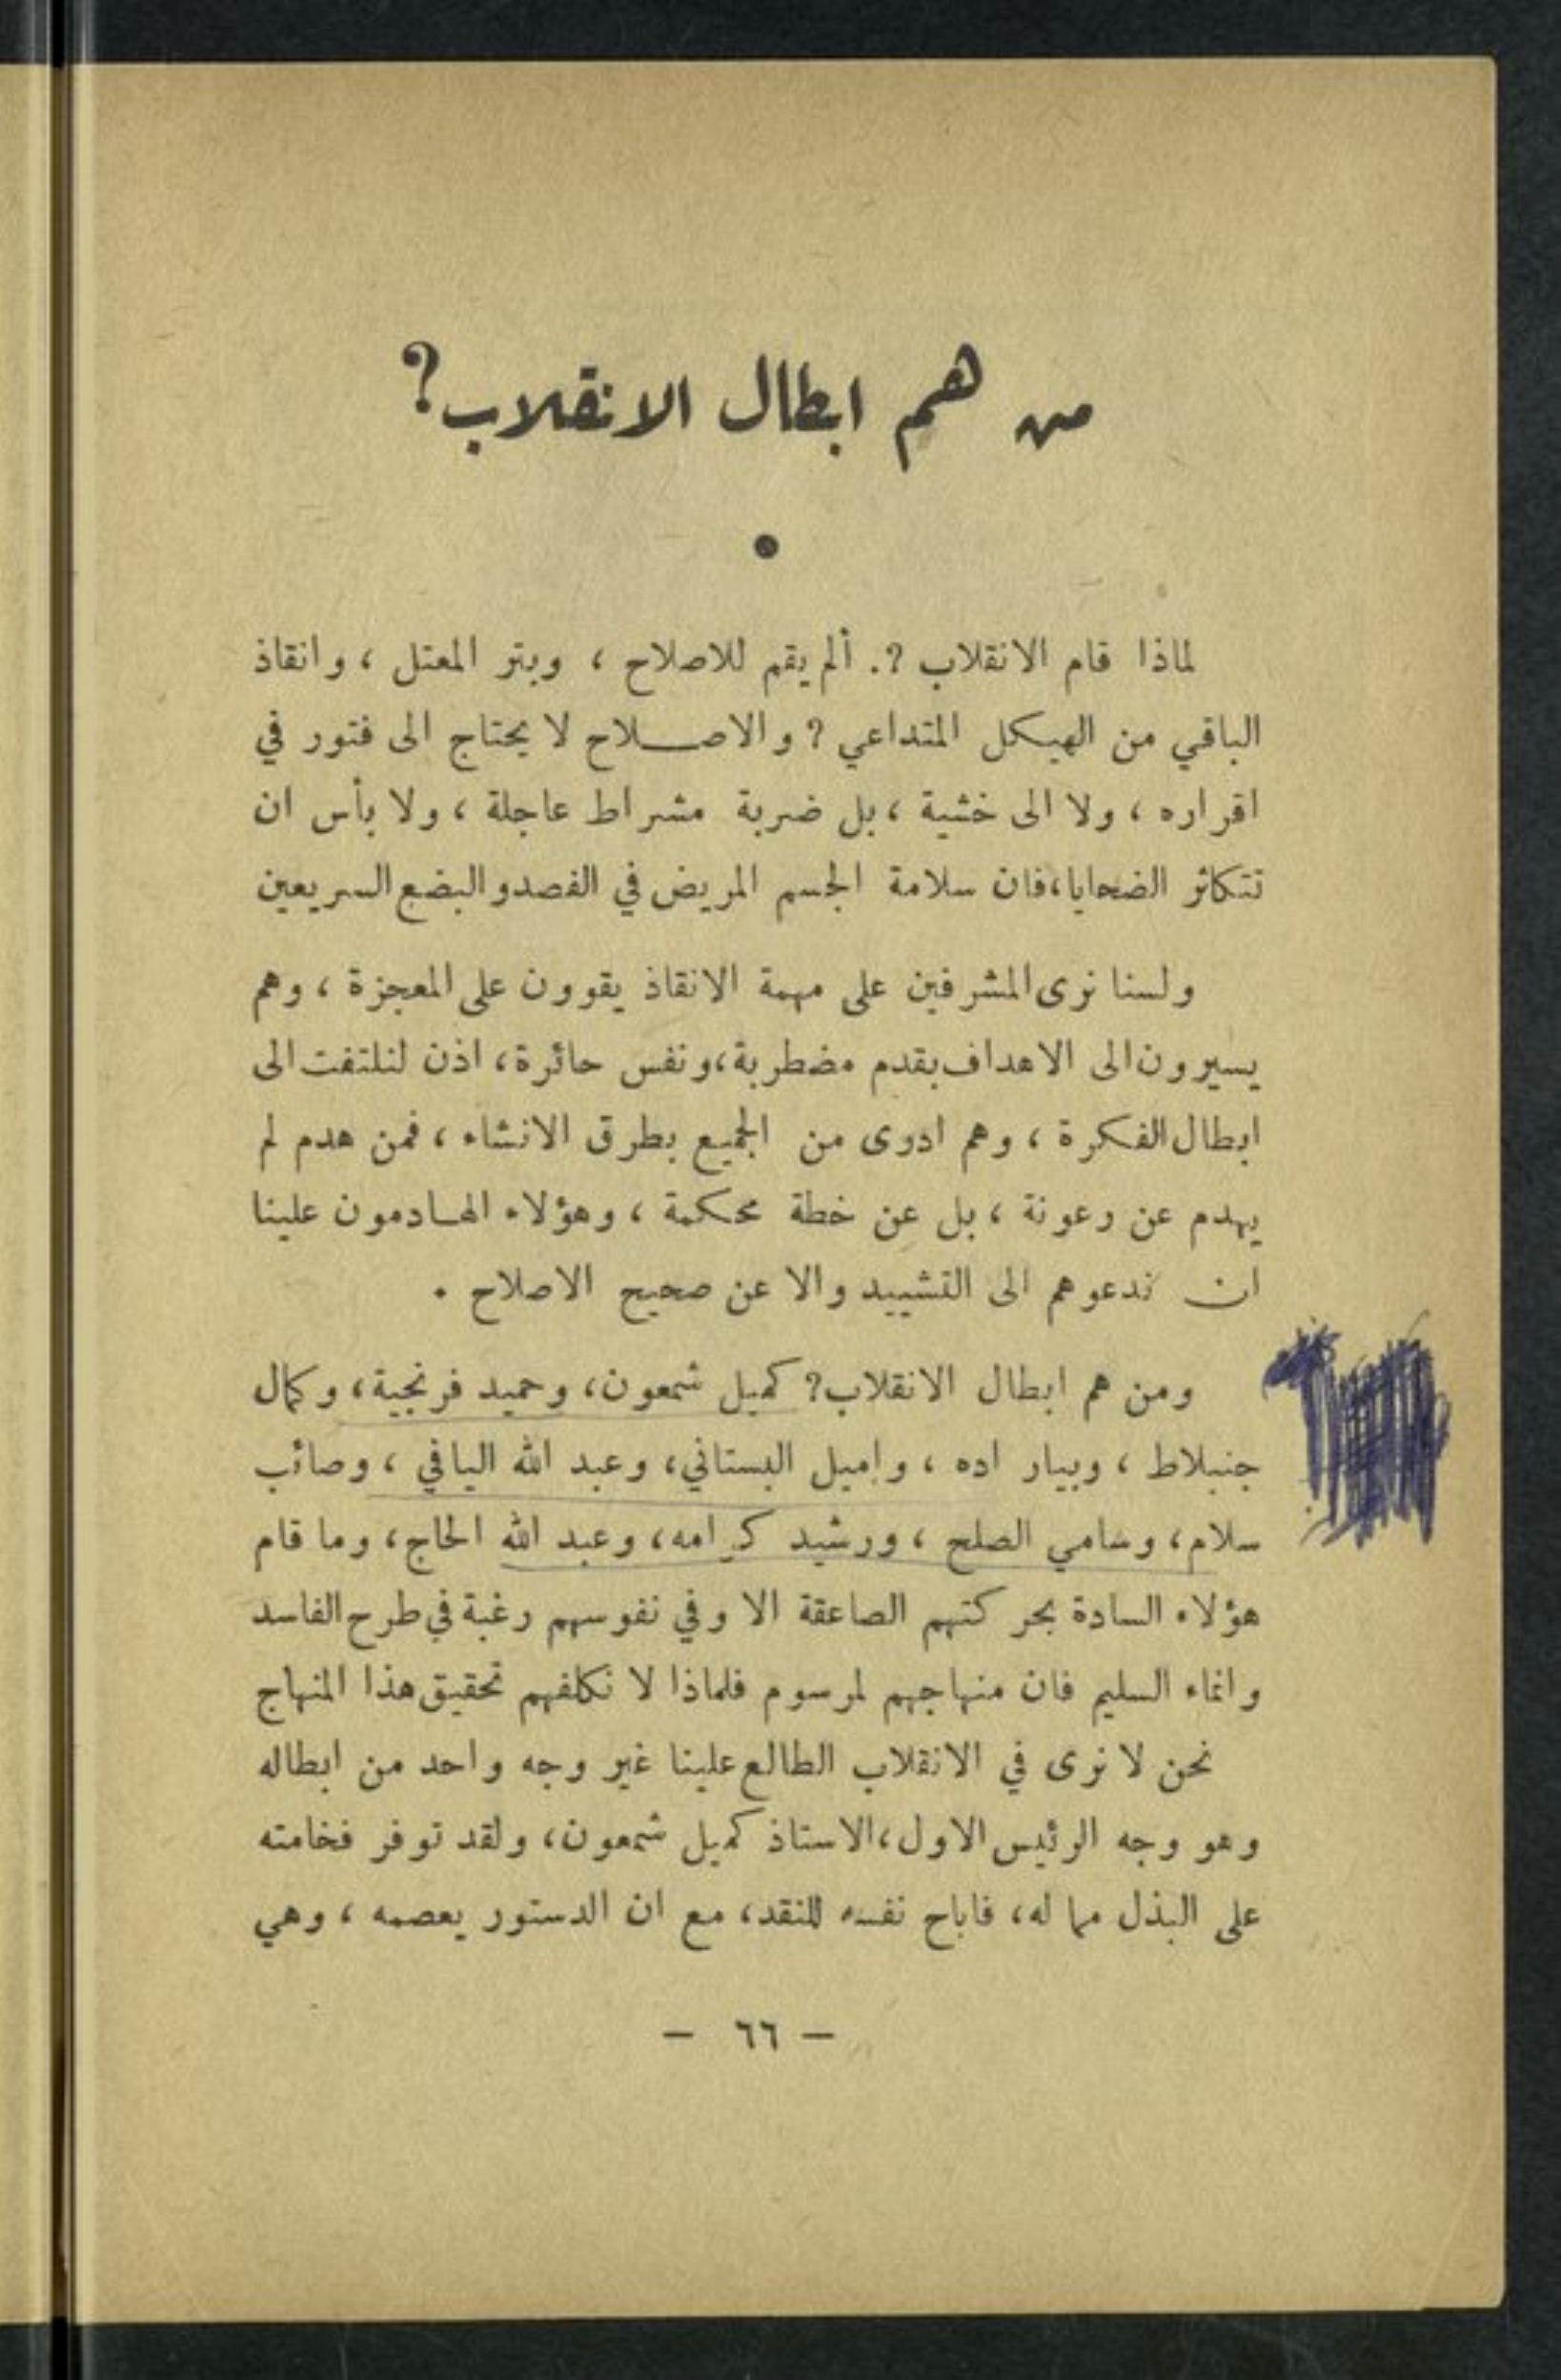 من هم ابطال الانقلاب؟
لماذا قام الانقلاب ؟. ألم يقم للاصلاح ، وبتر المعتل ، وانقاذ
الباقي من الهيكل المتداعي ؟ والاصـــلاح لا يحتاج الى فتور في
اقراره ، ولا الى خشية ، بل ضربة مشراط عاجلة ، ولا بأس ان
تتكاثر الضحايا،فان سلامة الجسم المريض في الفصدو البضع السريعين
ولسنا نرى المشرفين على مهمة الانقاذ يقوون على المعجزة ، وهم
يسيرون الى الاهداف بقدم مضطربة،ونفس حائرة، اذن لنلتفت الى
ابطال الفكرة ، وهم ادرى من الجميع بطرق الانشاء ، فمن هدم لم
يهدم عن رعونة ، بل عن خطة محكمة ، وهؤلاء الهـادمون علينا
ان ندعوهم الى التشييد والا عن صحيح الاصلاح .
ومن هم ابطال الانقلاب؟ كميل شمعون، وحميد فرنجية، وكمال
جنبلاط ، وبيار اده ، واميل البستاني، وعبد الله اليافي ، وصائب
سلام، وسامي الصلح ، ورشيد كرامه، وعبد الله الحاج، وما قام
هؤلاء السادة بحركتهم الصاعقة الا وفي نفوسهم رغبة في طرح الفاسد
وانماء السليم فان منهاجهم لمرسوم فلماذا لا نكلفهم تحقيق هذا المنهاج
نحن لا نرى في الانقلاب الطالع علينا غير وجه واحد من ابطاله
وهو وجه الرئيس الاول،الاستاذ كميل شمعون، ولقد توفر فخامته
على البذل مما له، فاباح نفسه للنقد، مع ان الدستور يعصمه ، وهي
— ٦٦ —